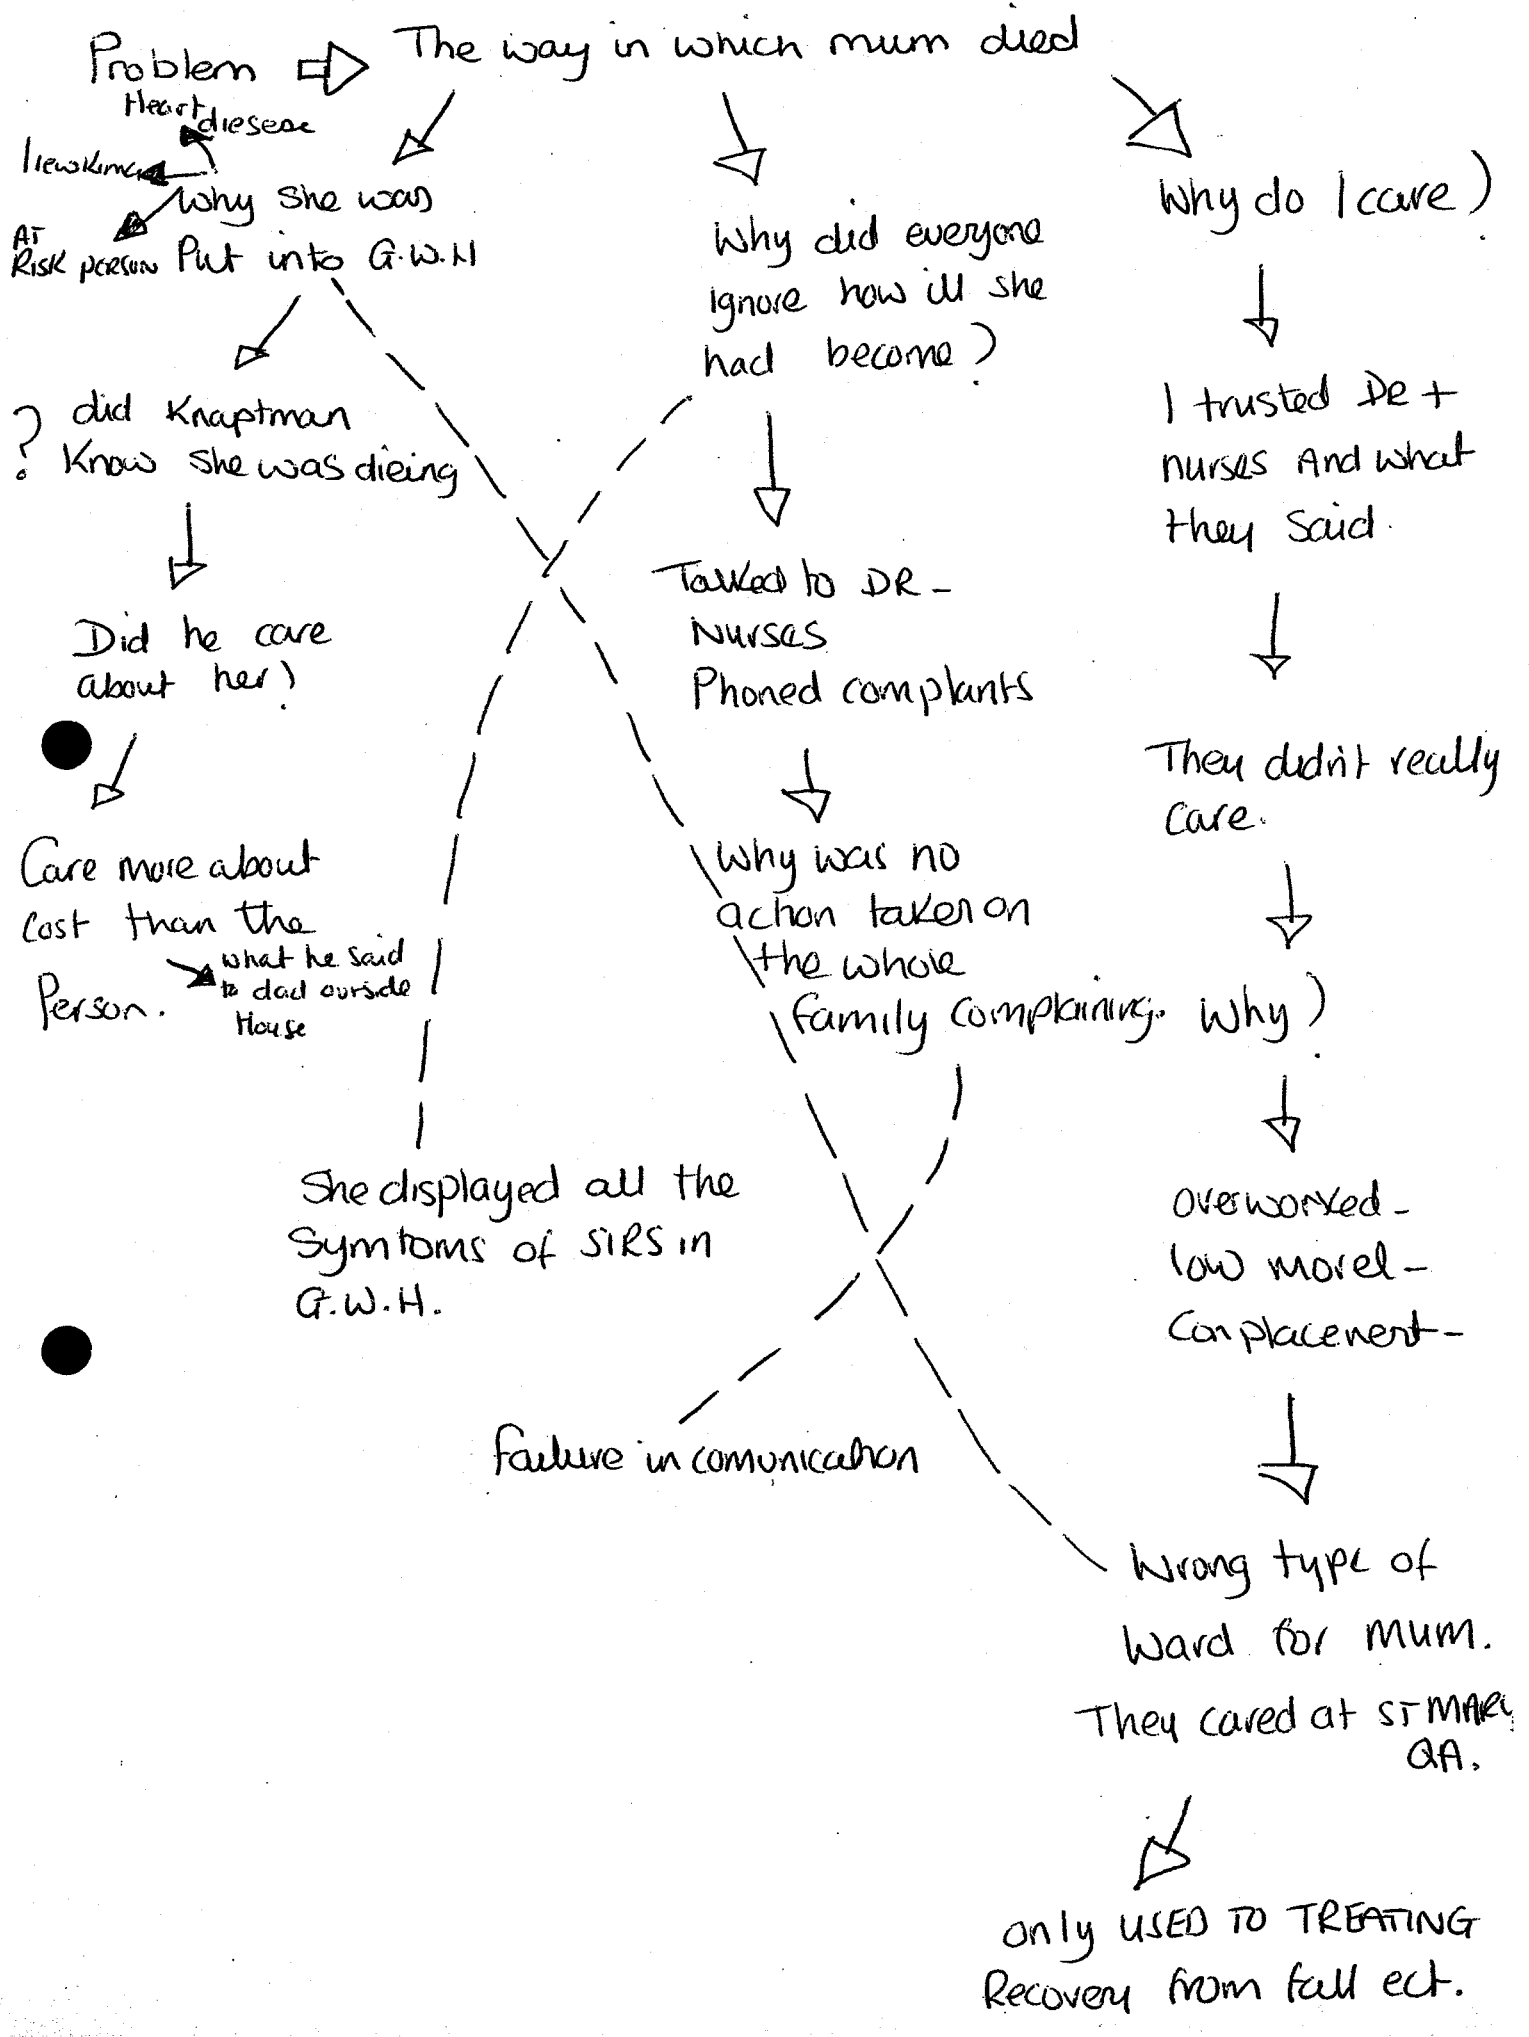 Problem
The way in which mum died
Heart
diesese
AT
RISK PERSON
Why she was
Put into G.W.H
? did Knaptman
Know she was dieing
Did he care
about her?
Care more about
cost than the
Person.
what he said
to dad ourside
House
Why did everyone
ignore how ill she
had become?
Talked to DR -
Nurses
Phoned complants
Why was no
action taken on
the whole
family complaining.
She displayed all the
Symtoms of SIRS in
G.W.H.
Failure in comunication
Why do I care?
I trusted DR +
nurses And what
they said.
They didn't really
care.
Why?
overworked -
low morel -
Conplacenent -
Wrong type of
Ward for MUM.
They cared at ST MARY
QA.
only USED TO TREATING
Recovery from fall ect.